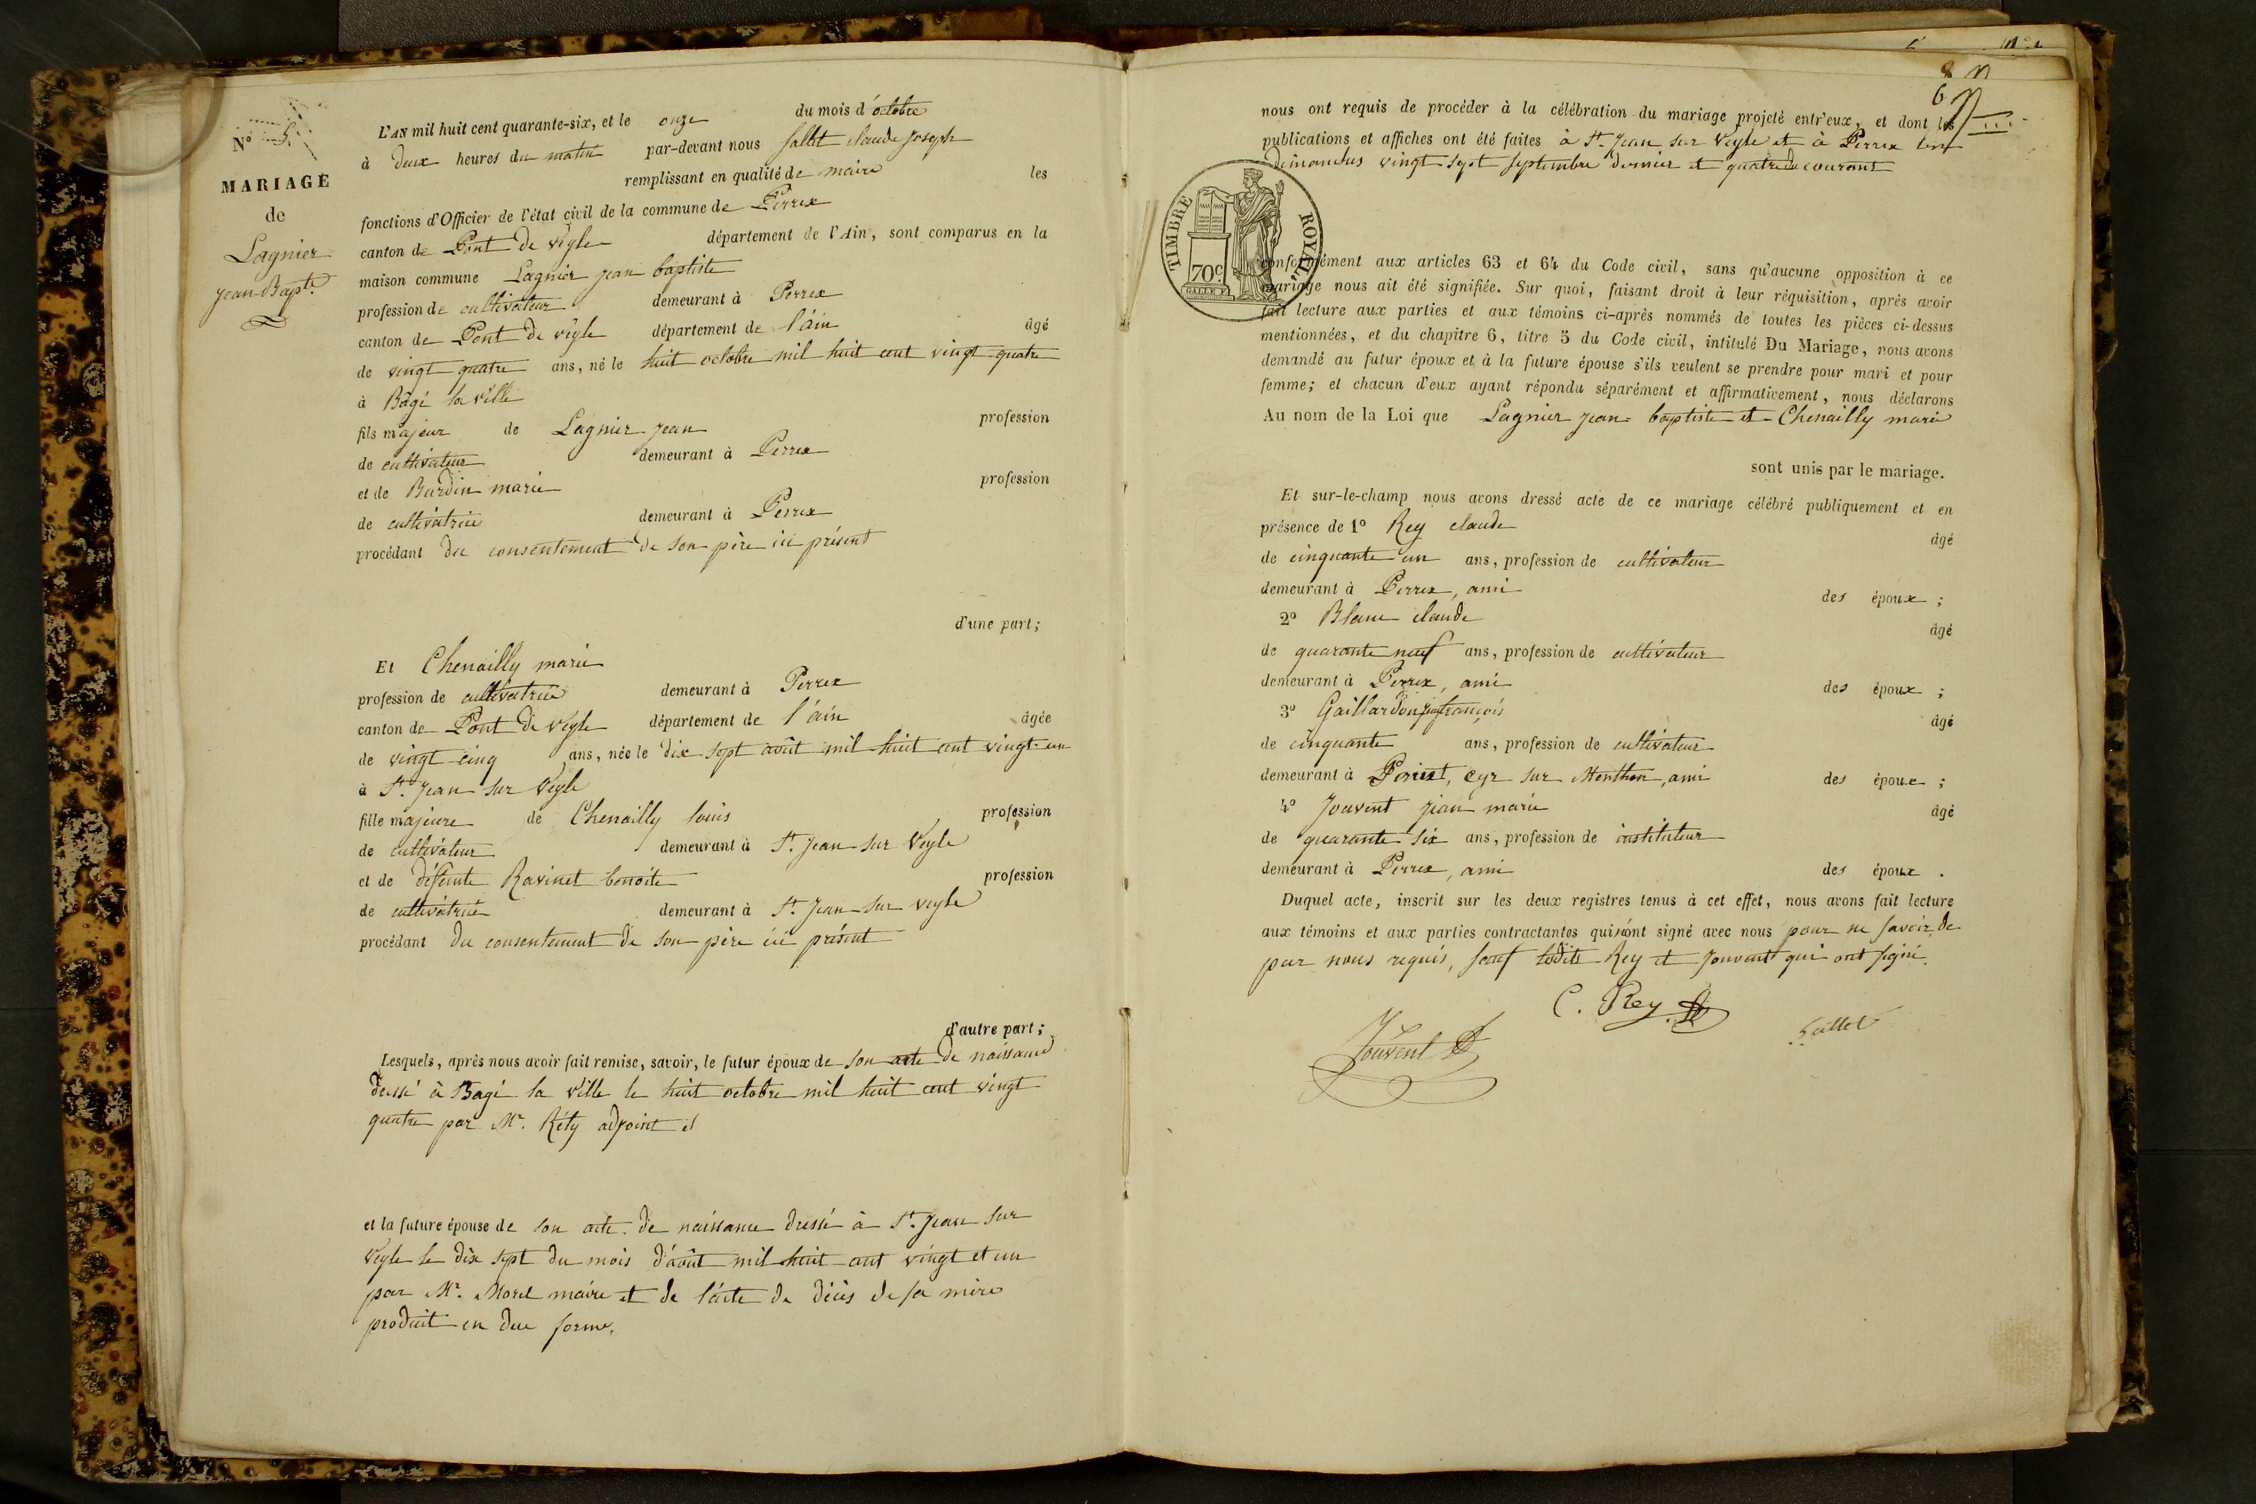 N° 5.
MARIAGE
de
Lagnier
Jean Bapte
L'AN mil huit cent quarante-six, et le onze du mois d'octobre
à deux heures du matin par-devant nous Sallet claude Joseph
remplissant en qualité de maire les
fonctions d'Officier de l'état civil de la commune de Perrex
canton de Pont de Veyle département de l'Ain, sont comparus en la
maison commune Lagnier jean baptiste
profession de cultivateur demeurant à Perrex
canton de Pont de veyle département de l'ain âgé
de vingt quatre ans, né le huit octobre mil huit cent vingt quatre
à Bagé la ville
fils majeur de Lagnier jean profession
de cultivateur demeurant à Perrex
et de Burdin marie profession
de cultivatrice demeurant à Perrex
procédant du consentement de son père ici présent
d'une part;
Et Chenailly marie
profession de cultivatrice demeurant à Perrex
canton de Pont de Veyle département de l'ain âgée
de vingt cinq ans, née le dix sept août mil huit cent vingt-un
à St. Jean sur Veyle
fille majeure de Chenailly louis profession
de cultivateur demeurant à St. Jean sur Veyle
et de défunte Ravinet benoite profession
de cultivatrice demeurant à St. Jean sur veyle
procédant du consentement de son père ici présent
d'autre part;
Lesquels, après nous avoir fait remise, savoir, le futur époux de son acte de naissance
dressé à Bagé la ville le huit octobre mil huit cent vingt
quatre par Mr. Réty adjoint et
et la future épouse de son acte de naissance dressé à St. Jean sur
Veyle le dix sept du mois d'août mil huit cent vingt et un
par Mr. Morel maire et de l'acte de décès de sa mère
produit en due forme.
6
nous ont requis de procéder à la célébration du mariage projeté entr'eux, et dont les
publications et affiches ont été faites à St. Jean sur Veyle et à Perrex les
dimanches vingt-sept septembre dernier et quatre du courant
TIMBRE ROYAL
70c
conformément aux articles 63 et 64 du Code civil, sans qu'aucune opposition à ce
mariage nous ait été signifiée. Sur quoi, faisant droit à leur réquisition, après avoir
fait lecture aux parties et aux témoins ci-après nommés de toutes les pièces ci-dessus
mentionnées, et du chapitre 6, titre 5 du Code civil, intitulé Du Mariage, nous avons
demandé au futur époux et à la future épouse s'ils veulent se prendre pour mari et pour
femme; et chacun d'eux ayant répondu séparément et affirmativement, nous déclarons
Au nom de la Loi que Lagnier jean baptiste et Chenailly marie
sont unis par le mariage.
Et sur-le-champ nous avons dressé acte de ce mariage célébré publiquement et en
présence de 1° Rey claude âgé
de cinquante un ans, profession de cultivateur
demeurant à Perrex, ami des époux;
2° Blanc claude âgé
de quarante neuf ans, profession de cultivateur
demeurant à Perrex, ami des époux;
3° Gaillardon françois âgé
de cinquante ans, profession de cultivateur
demeurant à cyr sur Menthon, ami des époux;
4° Jouvent jean marie âgé
de quarante six ans, profession de instituteur
demeurant à Perrex, ami des époux.
Duquel acte, inscrit sur les deux registres tenus à cet effet, nous avons fait lecture
aux témoins et aux parties contractantes qui n'ont signé avec nous pour ne savoir de
par nous requis, sauf lesdits Rey et Jouvent qui ont signé.
C. Rey
Jouvent
Sallet